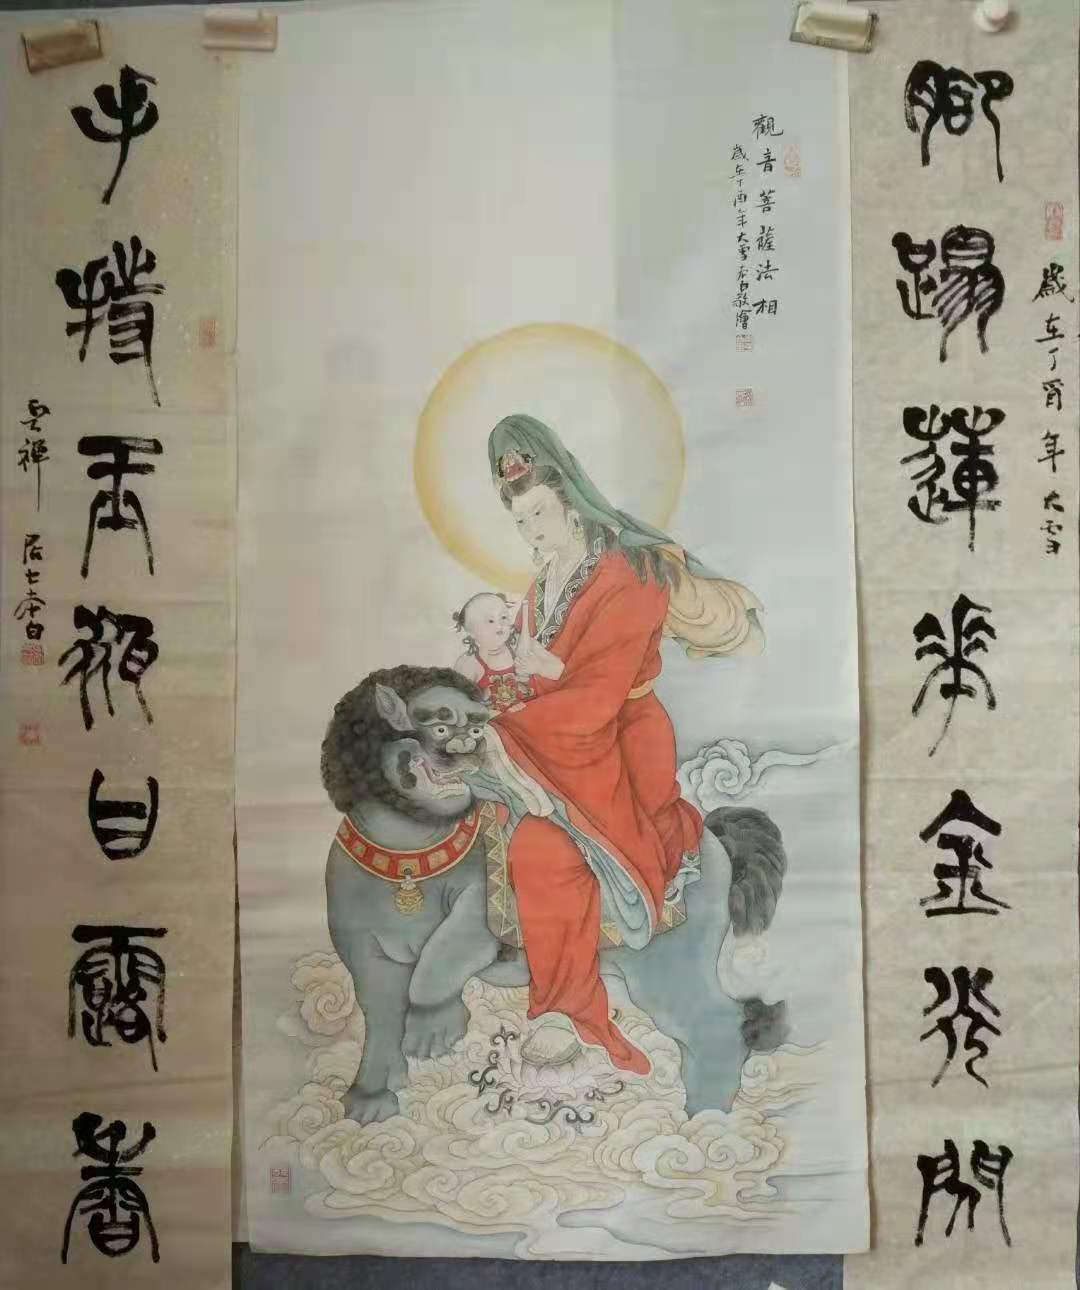 腳踏蓮花金光開
歲在丁酉年大雪
觀音菩薩法相
歲在丁酉年大雪本白敬繪
手持玉瓶甘露香
雲禪居士本白